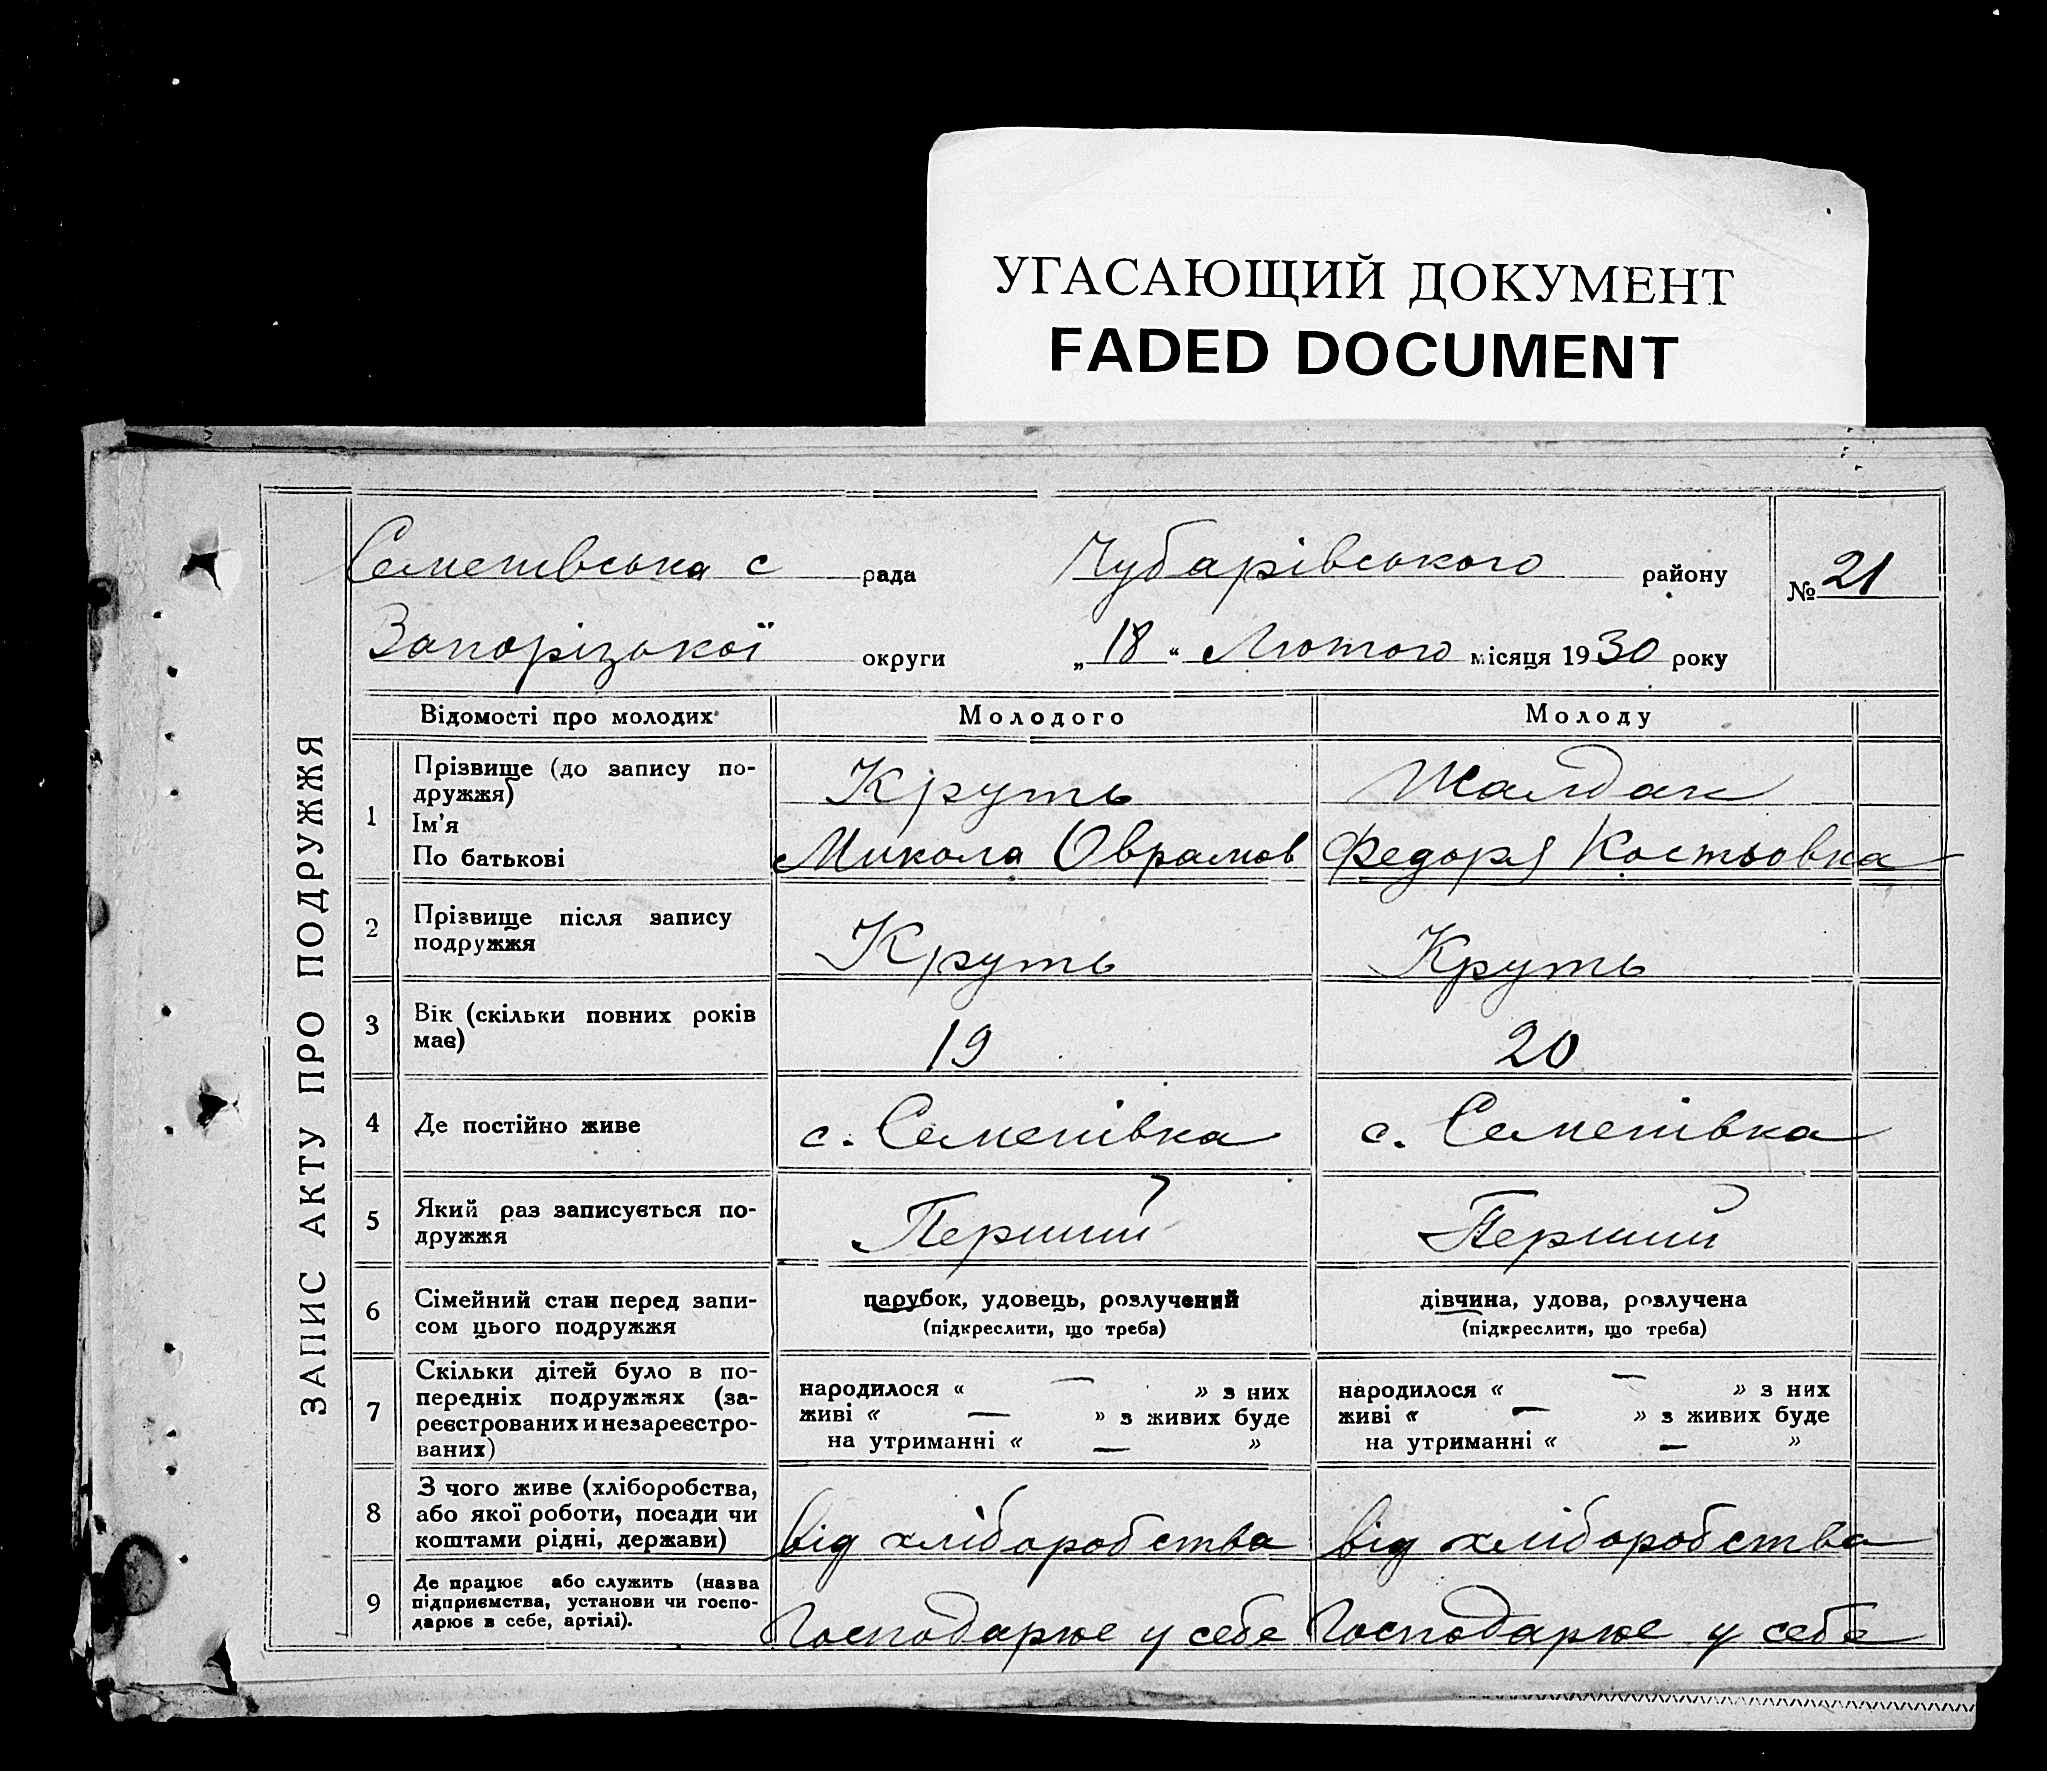 УГАСАЮЩИЙ ДОКУМЕНТ
FADED DOCUMENT
ЗАПИС АКТУ ПРО ПОДРУЖЖЯ
Семенівська с рада Чубарівського району № 21
Запорізької округи „18“ Лютого місяця 1930 року
Відомості про молодих Молодого Молоду
1 Прізвище (до запису подружжя) Круть Жалдак
Ім'я
По батькові Микола Оврамов Федоря Костьовка
2 Прізвище після запису подружжя Круть Круть
3 Вік (скільки повних років має) 19 20
4 Де постійно живе с. Семенівка с. Семенівка
5 Який раз записується подружжя Перший Перший
6 Сімейний стан перед записом цього подружжя парубок, удовець, розлучений дівчина, удова, розлучена
(підкреслити, що треба) (підкреслити, що треба)
7 Скільки дітей було в попередніх подружжях (зареєстрованих и незареєстрованих)
народилося « — » з них народилося « — » з них
живі « — » з живих буде живі « — » з живих буде
на утриманні « — » на утриманні « — »
8 З чого живе (хліборобства, або якої роботи, посади чи коштами рідні, держави) від хліборобства від хліборобства
9 Де працює або служить (назва підприємства, установи чи господарює в себе, артілі). Господарює у себе Господарює у себе